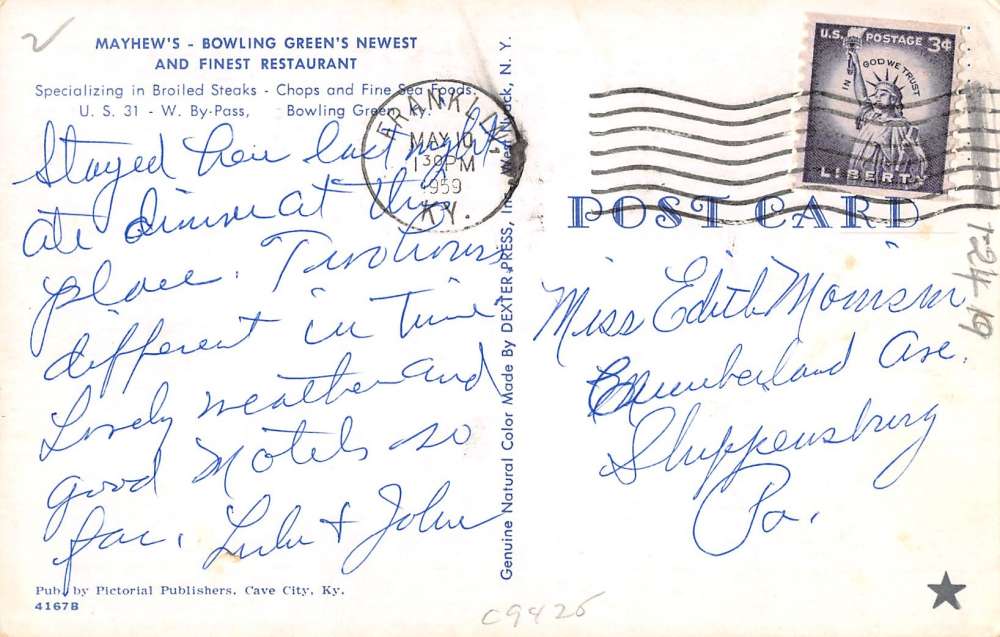 MAYHEW'S - BOWLING GREEN'S NEWEST
AND FINEST RESTAURANT
Specializing in Broiled Steaks - Chops and Fine Sea Foods.
U. S. 31 - W. By-Pass, Bowling Green, Ky.
Stayed here last night
ate dinner at this
place. Two hours
different in time
Lovely weather and
good Motels so
far. Lulu & John
Pub. by Pictorial Publishers, Cave City, Ky.
4167B
Genuine Natural Color Made By DEXTER PRESS, Inc., West Nyack, N. Y.
FRANKLIN
MAY 10
130PM
1959
KY.
U.S. POSTAGE 3¢
IN GOD WE TRUST
LIBERTY
POST CARD
Miss Edith Morrison
Cumberland Ave.
Shippensburg
Pa.
1-24-19
C9426